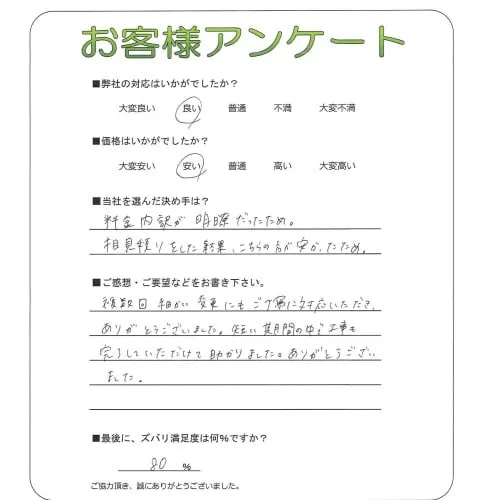 お客様アンケート
■弊社の対応はいかがでしたか？
大変良い 良い 普通 不満 大変不満
■価格はいかがでしたか？
大変安い 安い 普通 高い 大変高い
■当社を選んだ決め手は？
料金内訳が明瞭だったため。
相見積りをした結果、こちらの方が安かったため。
■ご感想・ご要望などをお書き下さい。
複数回細かい変更にもご丁寧に対応いただき、
ありがとうございました。短い期間の中で工事も
完了していただけて助かりました。ありがとうござい
ました。
■最後に、ズバリ満足度は何%ですか？
80 %
ご協力頂き、誠にありがとうございました。